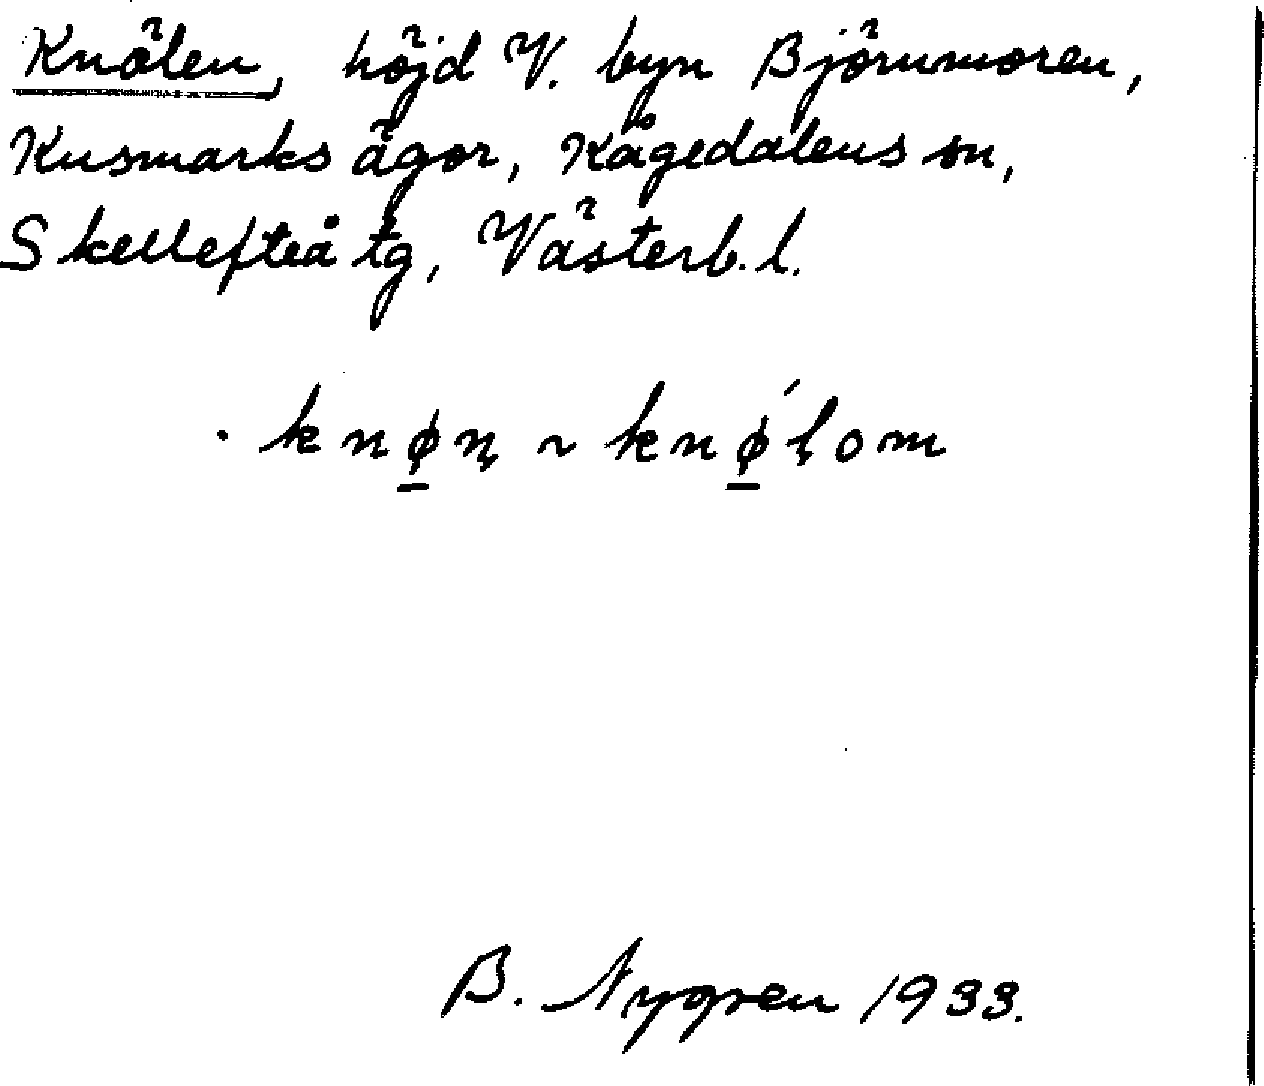 Knölen, höjd V. byn Björnmoren,
Kusmarks ägor, Kågedalens sn,
Skellefteå tg, Västerb. l.
. knø̲ɳ ~ knǿ̲ɭom
B. Nygren 1933.